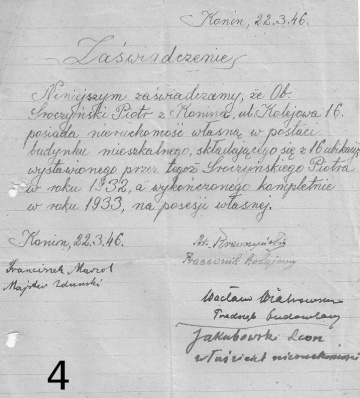 Konin, 22.3.46.
Zaświadczenie
Niniejszym zaświadczamy, że Ob.
Sroczyński Piotr z Konina, ul. Kolejowa 16.
posiada nieruchomość własną w postaci
budynku mieszkalnego, składającego się z 16 ubikacji
wystawionego przez tegoż Sroczyńskiego Piotra
w roku 1932, a wykończonego kompletnie
w roku 1933, na posesji własnej.
Konin, 22.3.46.
Franciszek
Majster
Pracownik Kolejowy
Wacław
budowlany
Jakubowski Leon
właściciel nieruchomości
4